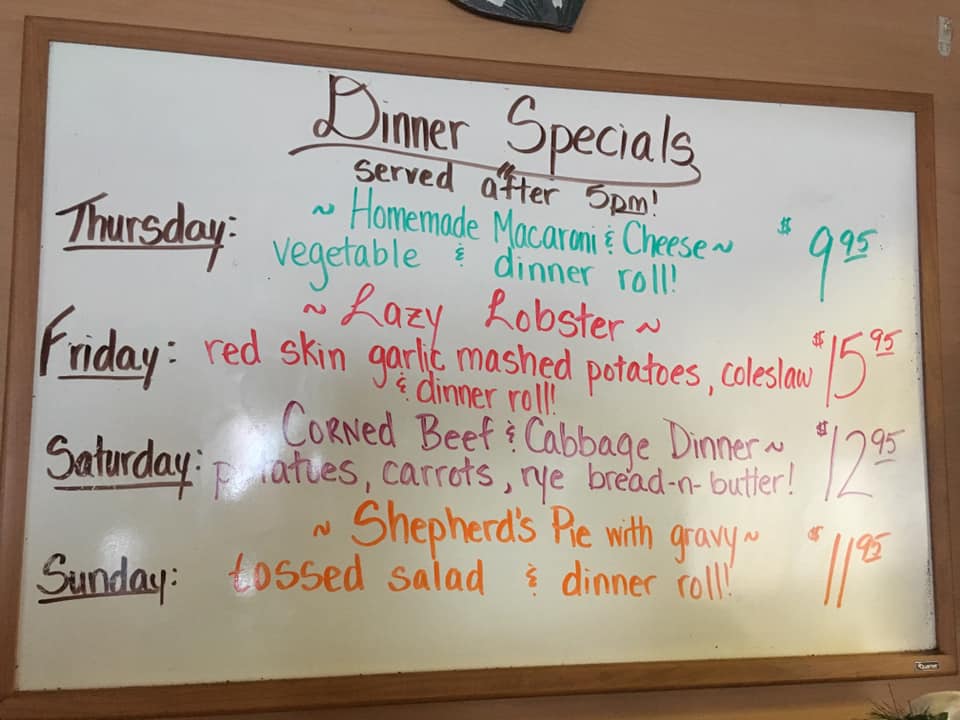 Dinner Specials
served after 5pm!
Thursday: ~ Homemade Macaroni & Cheese ~ $9.95
vegetable & dinner roll!
~ Lazy Lobster ~
Friday: red skin garlic mashed potatoes, coleslaw $15.95
& dinner roll!
Corned Beef & Cabbage Dinner ~ $12.95
Saturday: potatoes, carrots, rye bread-n-butter!
~ Shepherd's Pie with gravy ~ $11.95
Sunday: tossed salad & dinner roll!
Quartet